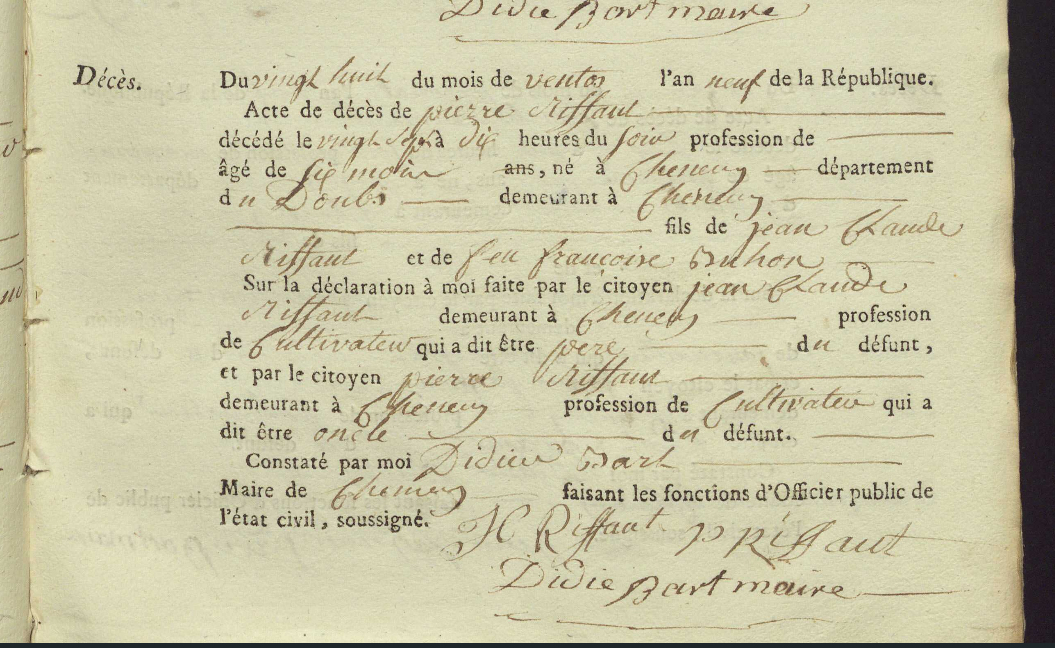 Didie Bart maire
Décès.
Du vingt huit du mois de ventos l'an neuf de la République.
Acte de décès de pierre Riffaut
décédé le vingt sept à dix heures du soir profession de
âgé de six mois ans, né à Chenecey département
du Doubs demeurant à Chenecey
fils de jean Claude
Riffaut et de feu francoise
Sur la déclaration à moi faite par le citoyen jean Claude
Riffaut demeurant à Chenecey profession
de Cultivateur qui a dit être pere du défunt,
et par le citoyen pierre Riffaut
demeurant à Chenecey profession de Cultivateur qui a
dit être oncle du défunt.
Constaté par moi Didier Bart
Maire de Chenecey faisant les fonctions d'Officier public de
l'état civil, soussigné. Riffaut P Riffaut
Didie Bart maire